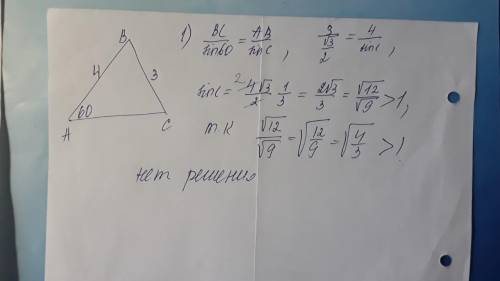 B
4 3
60
A C
1) BC/sin60 = AB/sinC , 3/(√3/2) = 4/sinC ,
sinC = 2 4√3/2 · 1/3 = 2√3/3 = √12/√9 > 1,
т.к √12/√9 = √(12/9) = √(4/3) > 1
нет решения